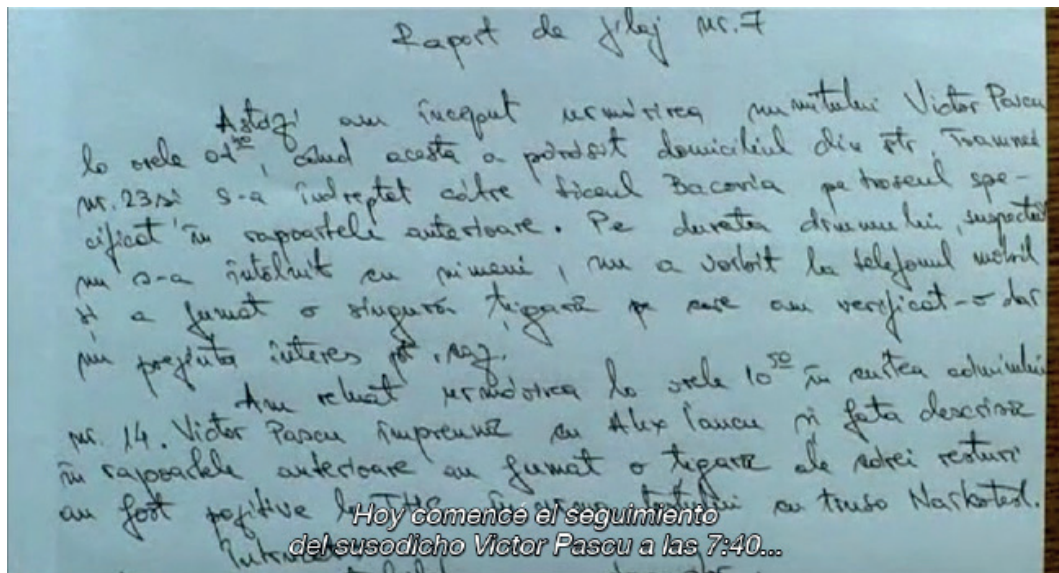 Raport de filaj nr. 7
Astăzi am început urmărirea numitului Victor Pascu
la orele când acesta a părăsit domiciliul din str.
nr. 23 și s-a îndreptat către liceul Bacovia pe traseul spe-
cificat în rapoartele anterioare. Pe durata drumului, suspectul
nu s-a întâlnit cu nimeni, nu a vorbit la telefonul mobil
și a fumat o singură țigară pe care am verificat-o dar
nu prezintă interes pt.
Am reluat urmărirea la orele 10⁵⁰ în curtea căminului
nr. 14. Victor Pascu împreună cu Alex Iancu și fata descrisă
în rapoartele anterioare au fumat o țigară ale cărei resturi
au fost pozitive la cu trusa Narkotest.
Întrucât
Hoy comencé el seguimiento
del susodicho Victor Pascu a las 7:40...